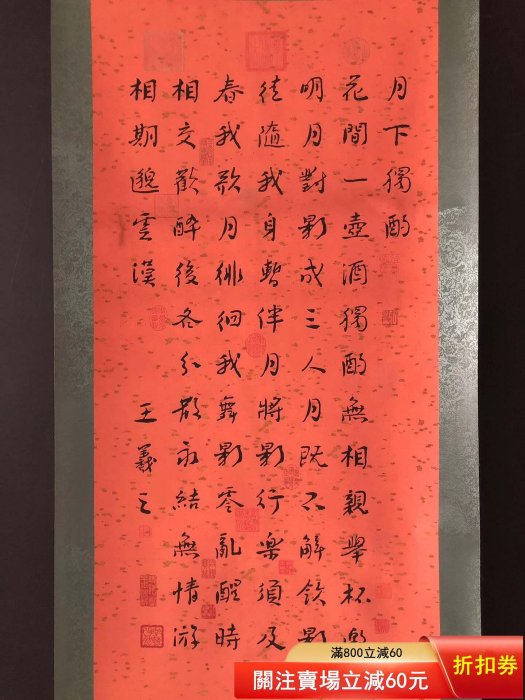 月下獨酌
花間一壺酒獨酌無相親舉杯邀
明月對影成三人月既不解飲影
徒隨我身暫伴月將影行樂須及
春我歌月徘徊我舞影零亂醒時
相交歡醉後各分散永結無情游
相期邈雲漢 王羲之
滿800立減60
關注賣場立減60元
折扣券